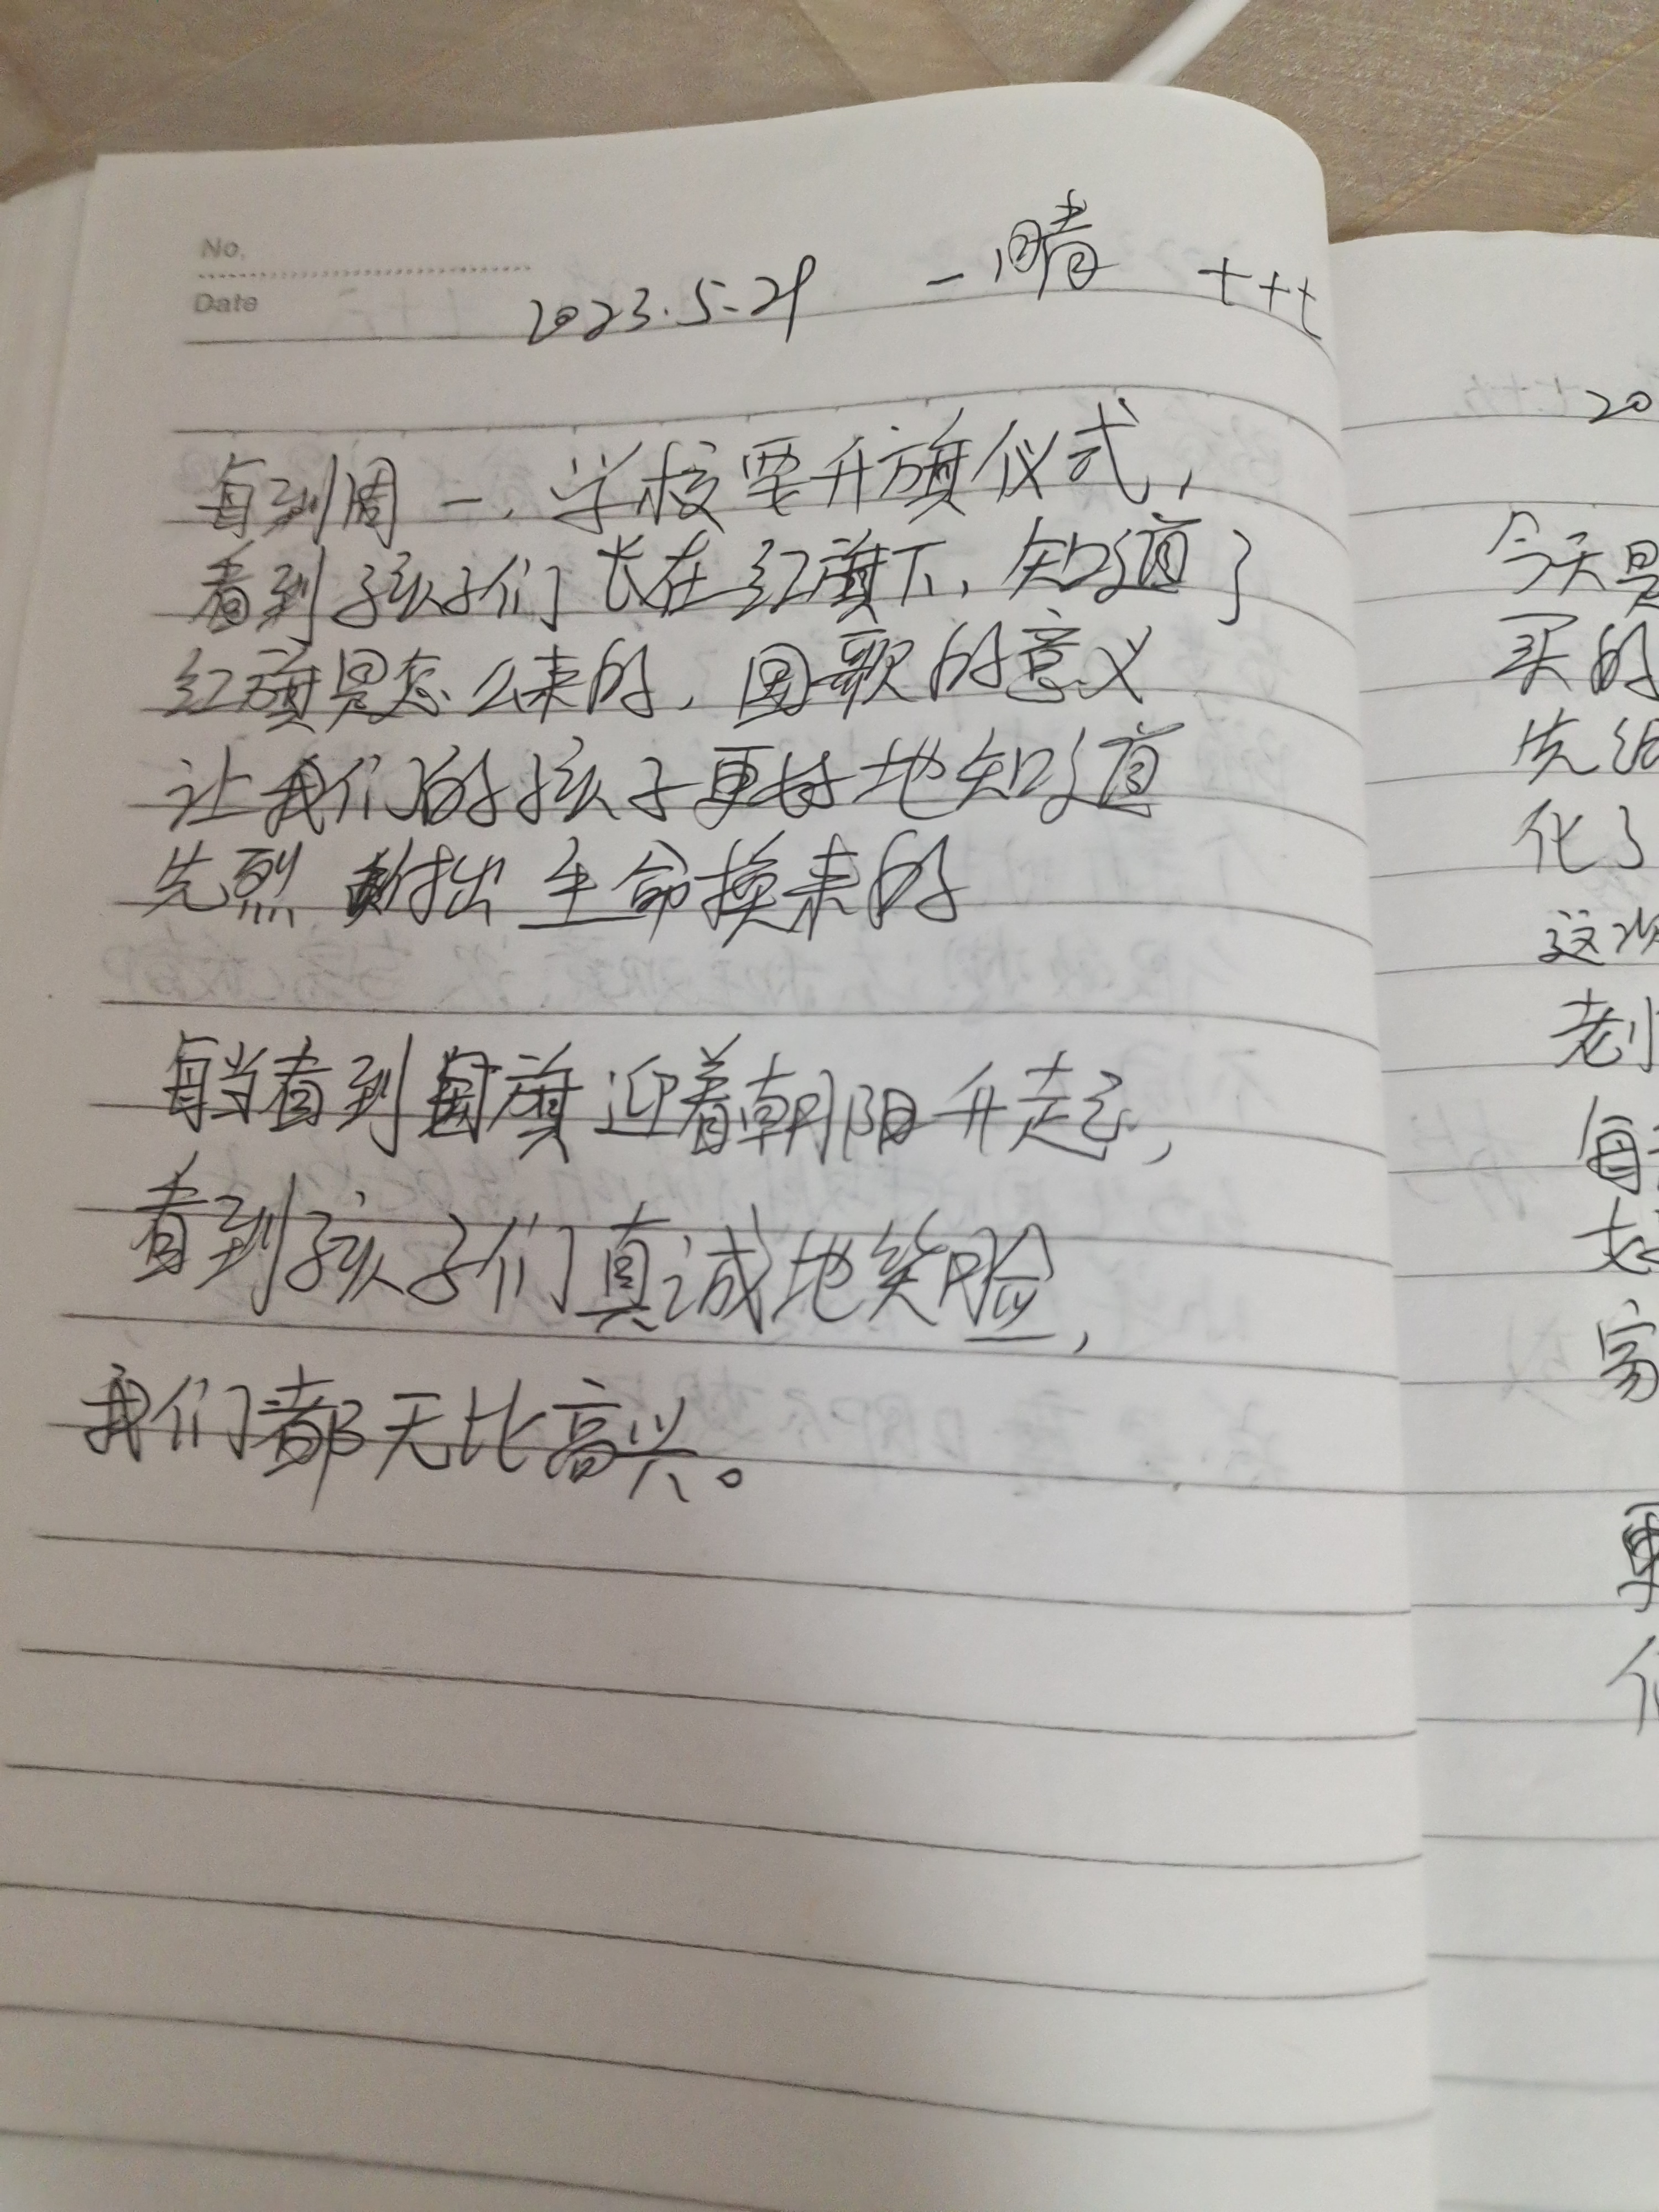 No.
Date
2023.5.29 一 晴 七十七
每到周一,学校要升旗仪式,
看到孩子们长在红旗下,知道了
红旗是怎么来的,国歌的意义
让我们的孩子更好地知道
先烈付出生命换来的
每当看到国旗迎着朝阳升起,
看到孩子们真诚地笑脸,
我们都无比高兴。
20
今天是
买的
先给
化了
这次
老师
每
家